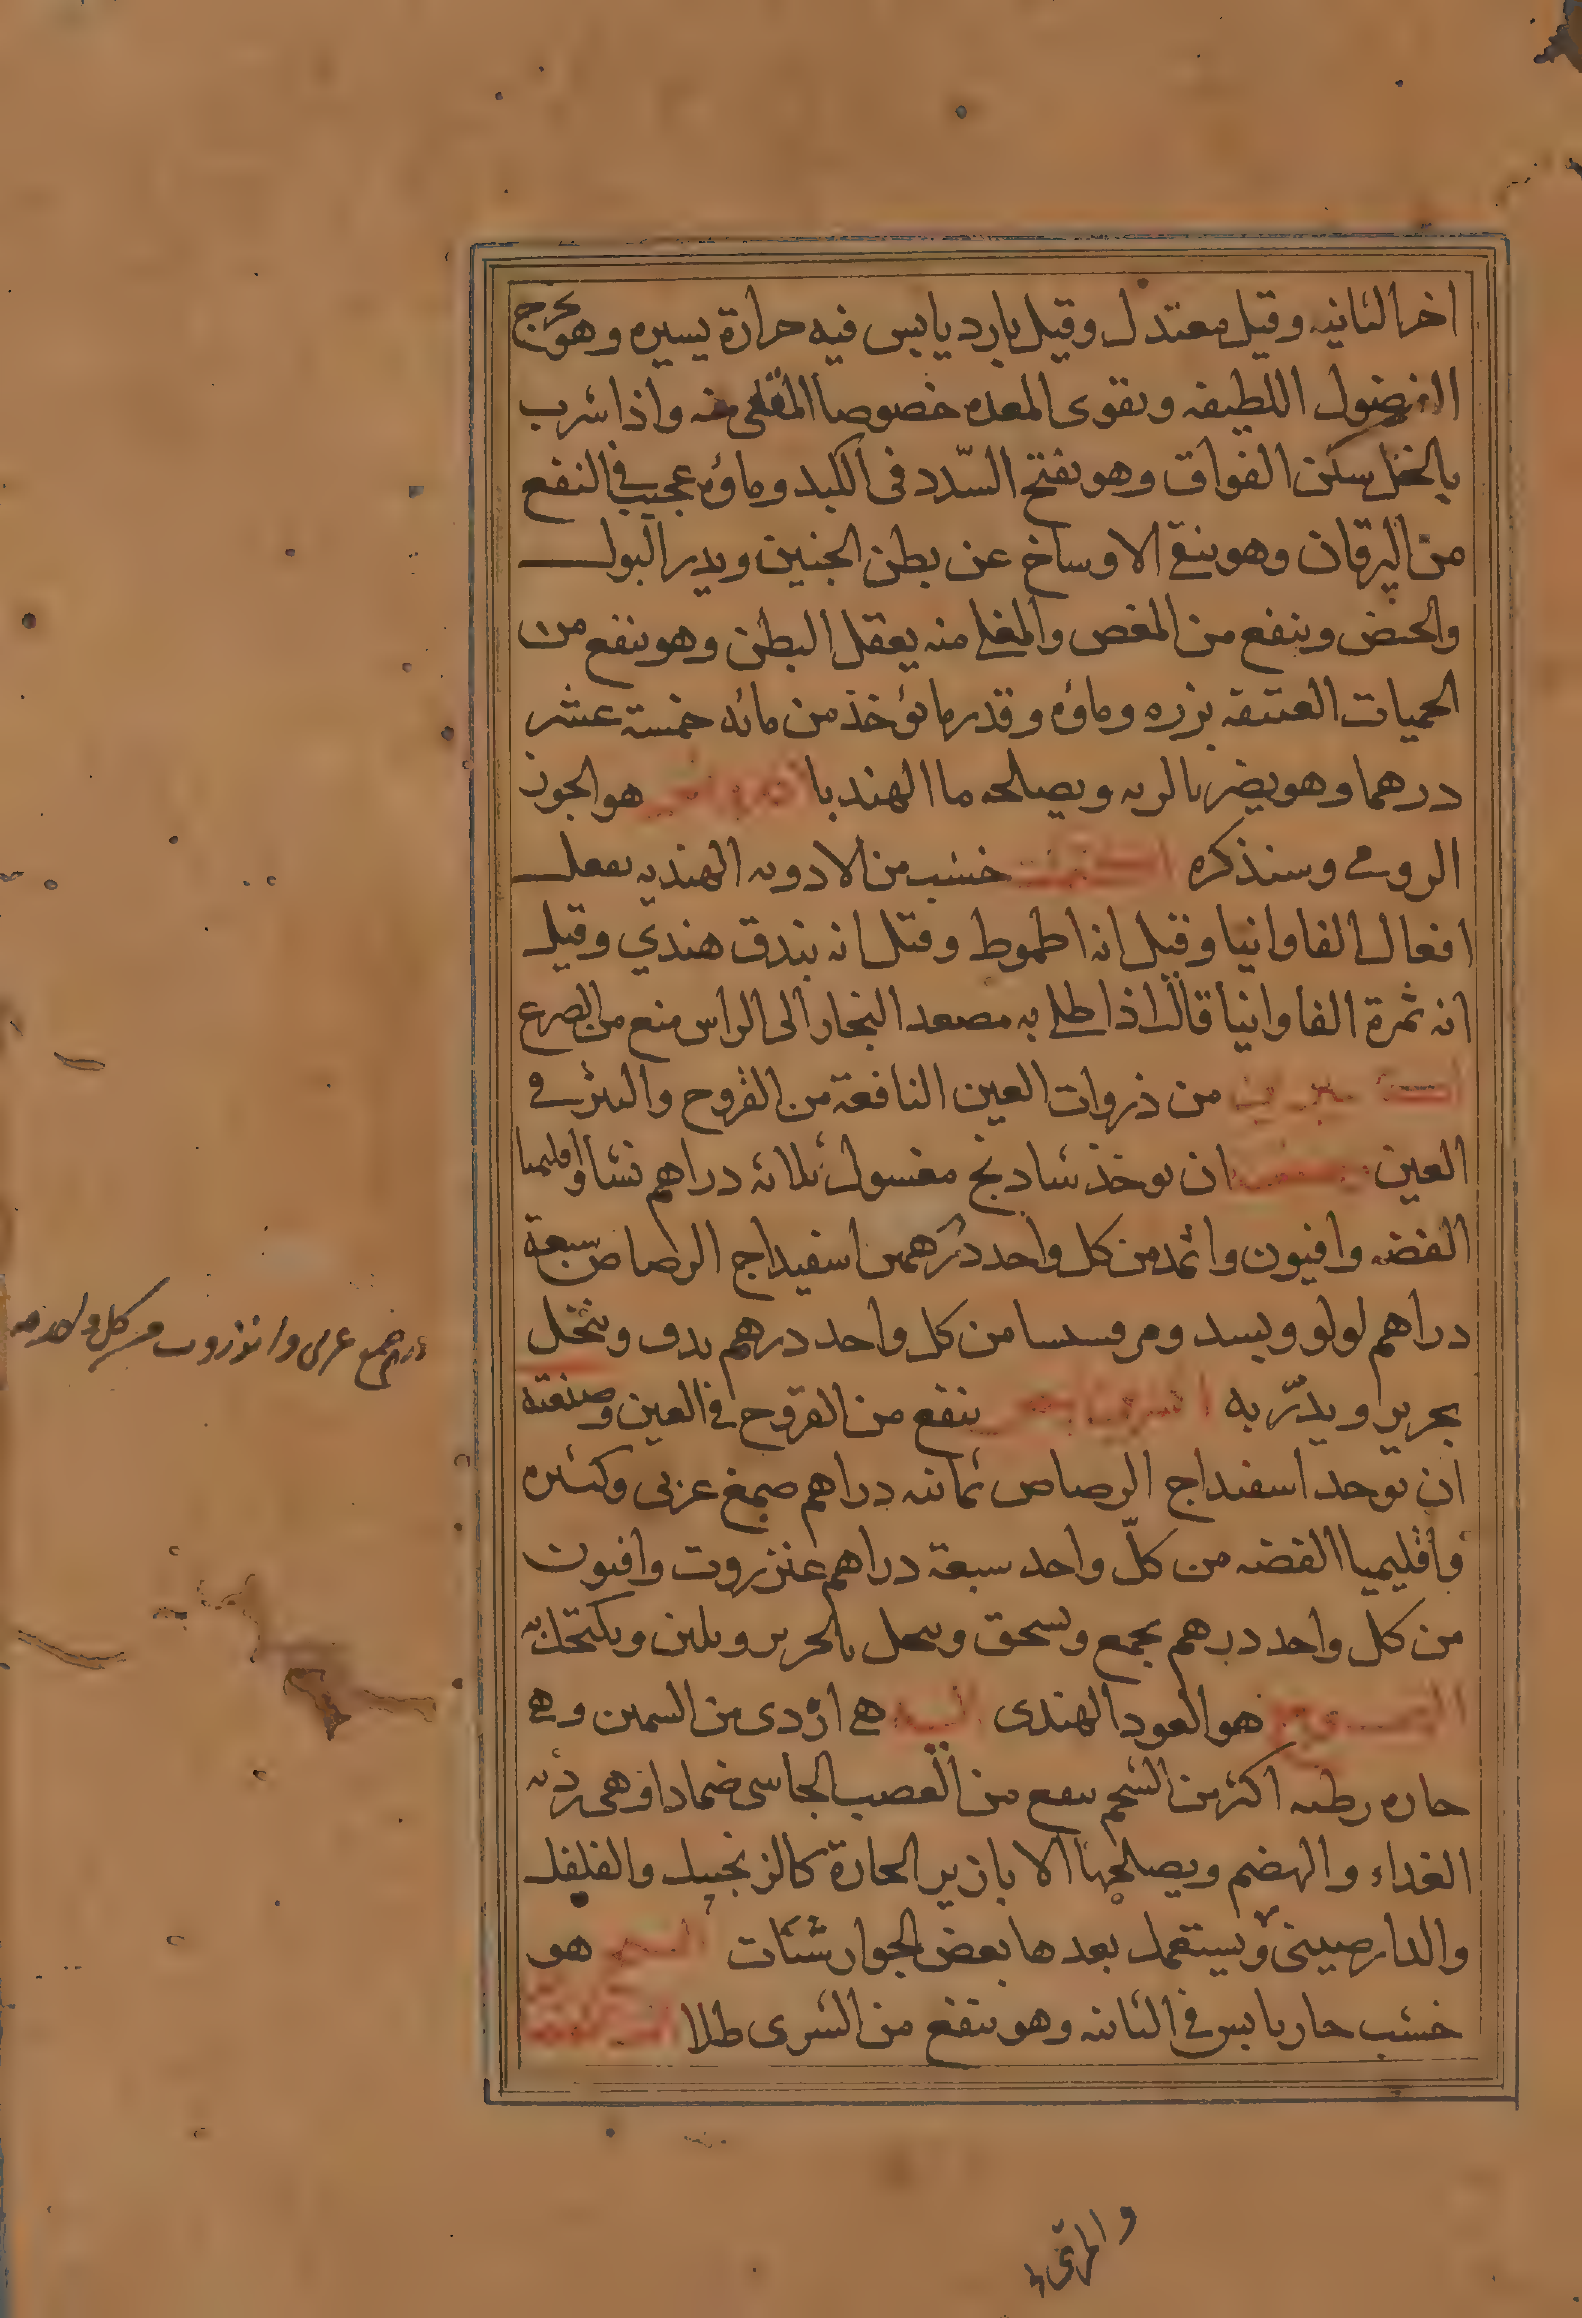 اخر الثانيه وقيل معتدل وقيل بارد يابس فيه حرارة يسيره وهو يخرج
الفضول اللطيفه ويقوى المعده خصوصا المقلى منه واذا شرب
بالخل سكن الفواق وهو يفتح السّدد فى الكبد وماؤه عجيب فى النفع
من اليرقان وهو ينقى الاوساخ عن بطن الجنين ويدر البول
والحيض وينفع من المغص والمغلى منه يعقل البطن وهو ينفع من
الحميات العتيقه بزره وماؤه وقدر ما يؤخذ من مائه خمسة عشر
درهما وهو يضر بالريه ويصلحه ما الهندبا هو الجوز
الرومى وسنذكره خشب من الادويه الهنديه يفعل
افعال الفاوانيا وقيل انه اطموط وقيل انه بندق هندي وقيل
انه ثمرة الفاوانيا قال اذا طلى به مصعد البخار الى الراس منع من الصرع
من ذروات العين النافعة من القروح والبثر فى
العين ان يوخذ شادنج مغسول ثلاثه دراهم نشا واقليميا
الفضه وافيون واثمد من كل واحد درهمين اسفيداج الرصاص سبعة
دراهم لولو وبسد ومرقسسا من كل واحد درهم يدق وينخل
بحرير ويذرّ به ينفع من القروح فى العين وصنعته
ان يوخد اسفيداج الرصاص ثمانيه دراهم صمغ عربى وكثيره
واقليميا الفضه من كلّ واحد سبعة دراهم عنزروت وافيون
من كل واحد درهم يجمع ويسحق وينخل بالحرير ويلين ويكتحل به
هو العود الهندى هى اردى من السمين وهى
حاره رطبه اكثر من الشحم ينفع من العصب الجاسى ضمادا وهى رديه
الغداء والهضم ويصلحها الابازير الحارة كالزنجبيل والفلفل
والدارصينى ويستعمل بعدها بعض الجوارشنات هو
خشب حار يابس فى الثانيه وهو ينفع من الشرى طلا
صمغ عربى وانزروت من كل واحد